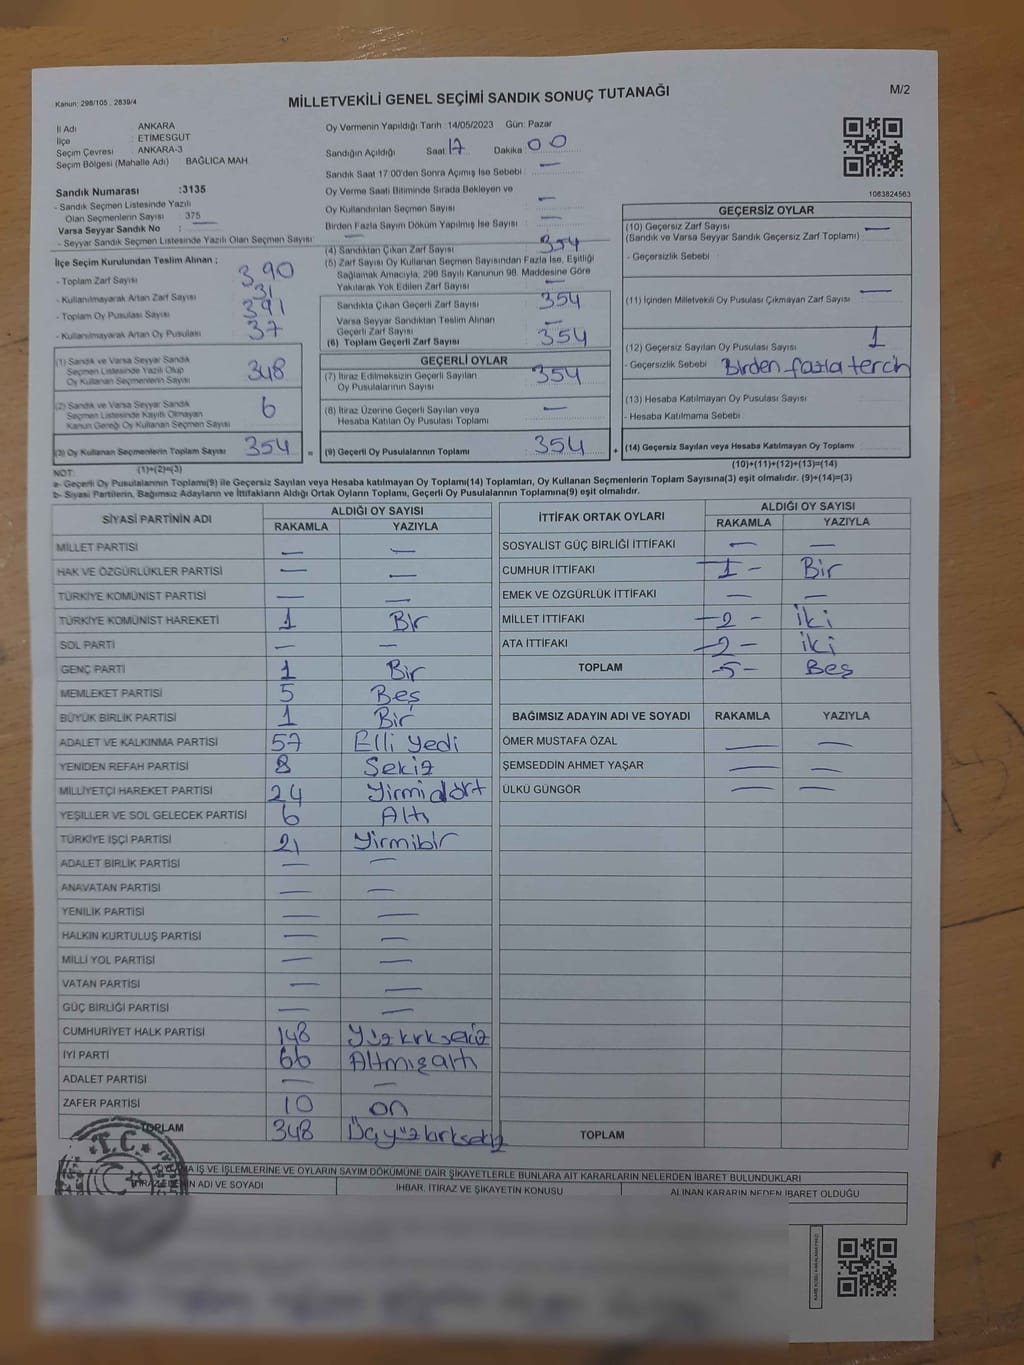 Kanun: 298/105 , 2839/4
MİLLETVEKİLİ GENEL SEÇİMİ SANDIK SONUÇ TUTANAĞI
M/2
İl Adı : ANKARA
İlçe : ETİMESGUT
Seçim Çevresi : ANKARA-3
Seçim Bölgesi (Mahalle Adı) : BAĞLICA MAH.
Sandık Numarası :3135
- Sandık Seçmen Listesinde Yazılı
Olan Seçmenlerin Sayısı : 375
Varsa Seyyar Sandık No : —
- Seyyar Sandık Seçmen Listesinde Yazılı Olan Seçmen Sayısı : —
Oy Vermenin Yapıldığı Tarih :14/05/2023 Gün: Pazar
Sandığın Açıldığı Saat 17 Dakika 00
Sandık Saat 17.00'den Sonra Açımış İse Sebebi : —
Oy Verme Saati Bitiminde Sırada Bekleyen ve
Oy Kullandırılan Seçmen Sayısı : —
Birden Fazla Sayım Döküm Yapılmış İse Sayısı : —
1083824563
İlçe Seçim Kurulundan Teslim Alınan ;
- Toplam Zarf Sayısı 390
- Kullanılmayarak Artan Zarf Sayısı 31
- Toplam Oy Pusulası Sayısı 391
- Kullanılmayarak Artan Oy Pusulası 37
(1) Sandık ve Varsa Seyyar Sandık
Seçmen Listesinde Yazılı Olup
Oy Kullanan Seçmenlerin Sayısı 348
(2) Sandık ve Varsa Seyyar Sandık
Seçmen Listesinde Kayıtlı Olmayan
Kanun Gereği Oy Kullanan Seçmen Sayısı 6
(3) Oy Kullanan Seçmenlerin Toplam Sayısı 354
(4) Sandıktan Çıkan Zarf Sayısı 354
(5) Zarf Sayısı Oy Kullanan Seçmen Sayısından Fazla İse, Eşitliği
Sağlamak Amacıyla, 298 Sayılı Kanunun 98. Maddesine Göre
Yakılarak Yok Edilen Zarf Sayısı —
Sandıkta Çıkan Geçerli Zarf Sayısı 354
Varsa Seyyar Sandıktan Teslim Alınan
Geçerli Zarf Sayısı —
(6) Toplam Geçerli Zarf Sayısı 354
GEÇERLİ OYLAR
(7) İtiraz Edilmeksizin Geçerli Sayılan
Oy Pusulalarının Sayısı 354
(8) İtiraz Üzerine Geçerli Sayılan veya
Hesaba Katılan Oy Pusulası Toplamı —
= (9) Geçerli Oy Pusulalarının Toplamı 354
GEÇERSİZ OYLAR
(10) Geçersiz Zarf Sayısı —
(Sandık ve Varsa Seyyar Sandık Geçersiz Zarf Toplamı)
- Geçersizlik Sebebi
(11) İçinden Milletvekili Oy Pusulası Çıkmayan Zarf Sayısı —
(12) Geçersiz Sayılan Oy Pusulası Sayısı 1
- Geçersizlik Sebebi Birden fazla tercih
(13) Hesaba Katılmayan Oy Pusulası Sayısı
- Hesaba Katılmama Sebebi
+ (14) Geçersiz Sayılan veya Hesaba Katılmayan Oy Toplamı
NOT: (1)+(2)=(3)
(10)+(11)+(12)+(13)=(14)
a- Geçerli Oy Pusulalarının Toplamı(9) ile Geçersiz Sayılan veya Hesaba katılmayan Oy Toplamı(14) Toplamları, Oy Kullanan Seçmenlerin Toplam Sayısına(3) eşit olmalıdır. (9)+(14)=(3)
b- Siyasi Partilerin, Bağımsız Adayların ve İttifakların Aldığı Ortak Oyların Toplamı, Geçerli Oy Pusulalarının Toplamına(9) eşit olmalıdır.
SİYASİ PARTİNİN ADI ALDIĞI OY SAYISI
RAKAMLA YAZIYLA
MİLLET PARTİSİ — —
HAK VE ÖZGÜRLÜKLER PARTİSİ — —
TÜRKİYE KOMÜNİST PARTİSİ — —
TÜRKİYE KOMÜNİST HAREKETİ 1 Bir
SOL PARTİ — —
GENÇ PARTİ 1 Bir
MEMLEKET PARTİSİ 5 Beş
BÜYÜK BİRLİK PARTİSİ 1 Bir
ADALET VE KALKINMA PARTİSİ 57 Elli yedi
YENİDEN REFAH PARTİSİ 8 Sekiz
MİLLİYETÇİ HAREKET PARTİSİ 24 Yirmi dört
YEŞİLLER VE SOL GELECEK PARTİSİ 6 Altı
TÜRKİYE İŞÇİ PARTİSİ 21 Yirmibir
ADALET BİRLİK PARTİSİ — —
ANAVATAN PARTİSİ — —
YENİLİK PARTİSİ — —
HALKIN KURTULUŞ PARTİSİ — —
MİLLİ YOL PARTİSİ — —
VATAN PARTİSİ — —
GÜÇ BİRLİĞİ PARTİSİ — —
CUMHURİYET HALK PARTİSİ 148 Yüzkırksekiz
İYİ PARTİ 66 Altmışaltı
ADALET PARTİSİ — —
ZAFER PARTİSİ 10 on
TOPLAM 348 Üçyüzkırksekiz
İTTİFAK ORTAK OYLARI ALDIĞI OY SAYISI
RAKAMLA YAZIYLA
SOSYALİST GÜÇ BİRLİĞİ İTTİFAKI — —
CUMHUR İTTİFAKI -1- Bir
EMEK VE ÖZGÜRLÜK İTTİFAKI — —
MİLLET İTTİFAKI -2- İki
ATA İTTİFAKI -2- İki
TOPLAM -5- Beş
BAĞIMSIZ ADAYIN ADI VE SOYADI RAKAMLA YAZIYLA
ÖMER MUSTAFA ÖZAL — —
ŞEMSEDDİN AHMET YAŞAR — —
ÜLKÜ GÜNGÖR — —
TOPLAM
T.C.
İŞ VE İŞLEMLERİNE VE OYLARIN SAYIM DÖKÜMÜNE DAİR ŞİKAYETLERLE BUNLARA AİT KARARLARIN NELERDEN İBARET BULUNDUKLARI
ADI VE SOYADI İHBAR, İTİRAZ VE ŞİKAYETİN KONUSU ALINAN KARARIN NEDEN İBARET OLDUĞU